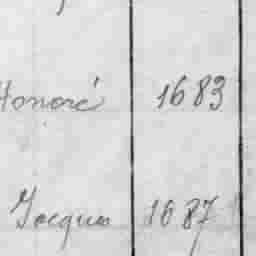 Honoré 1683
Jacques 1687